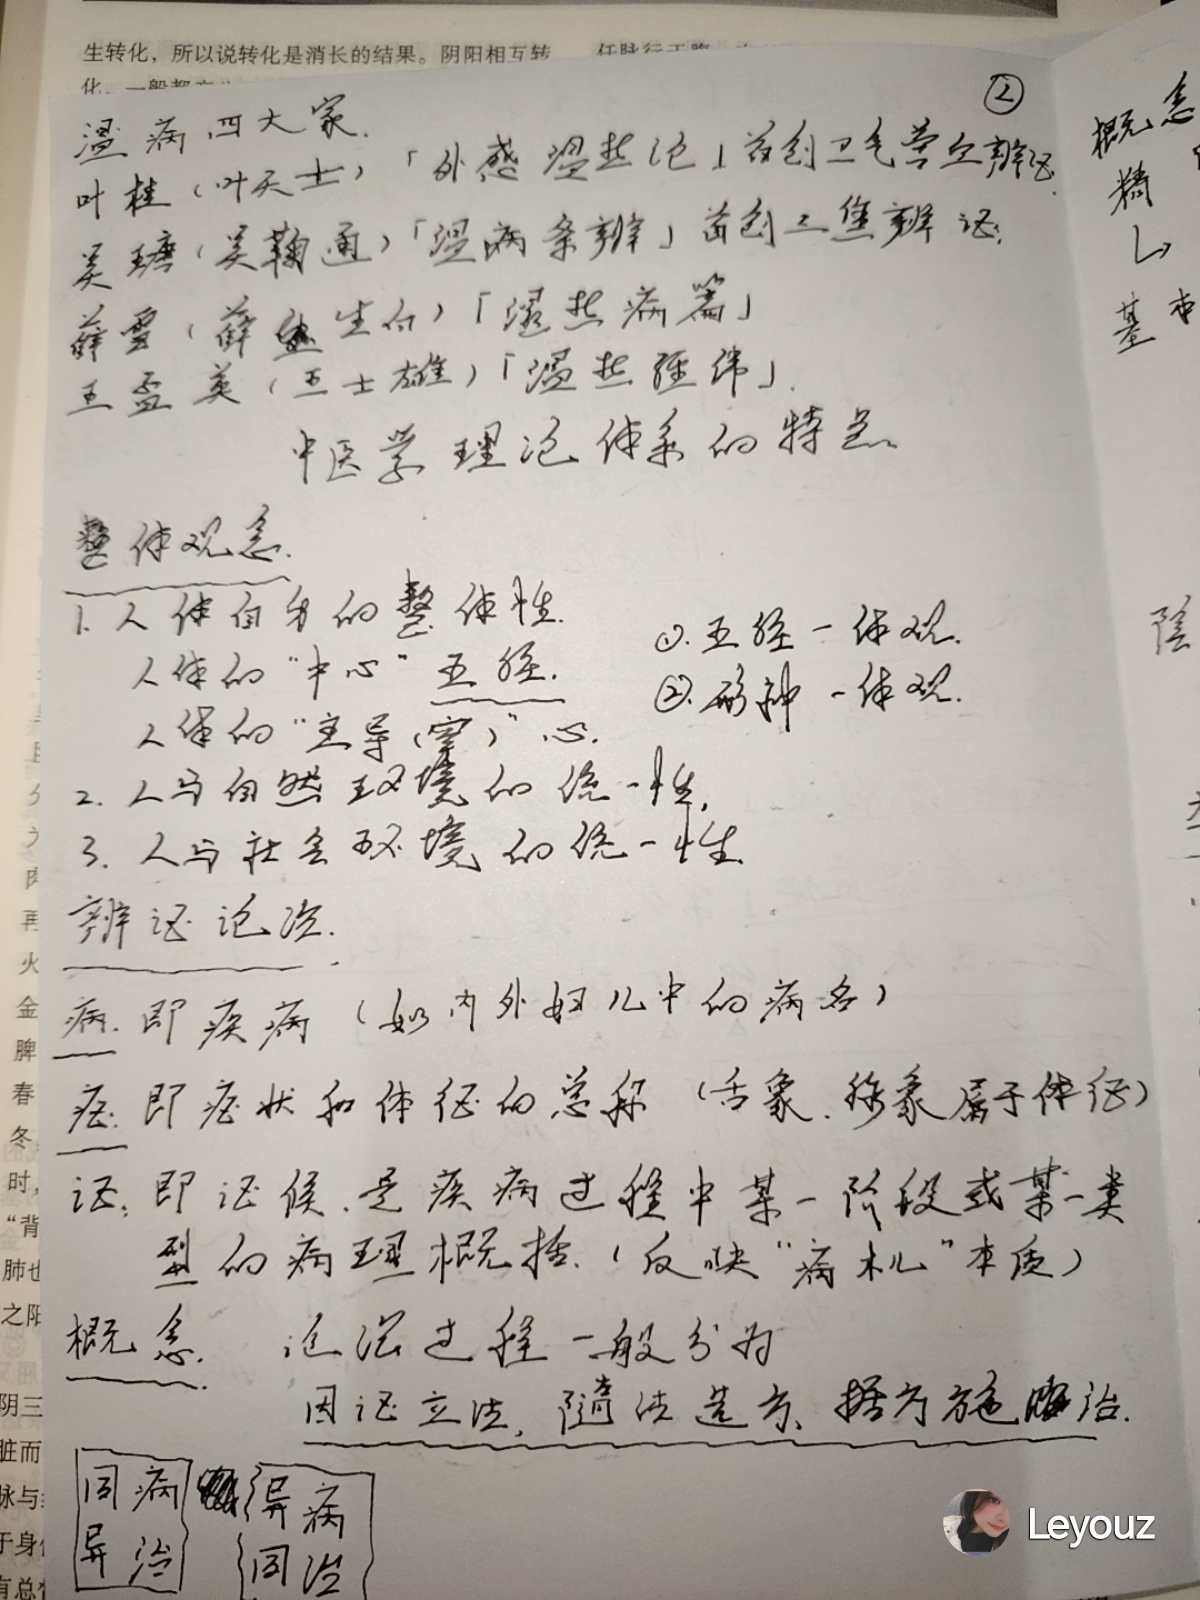 生转化，所以说转化是消长的结果。阴阳相互转
②
温病四大家.
叶桂（叶天士）「外感温热论」首创卫气营血辨证.
吴瑭（吴鞠通）「温病条辨」首创三焦辨证.
薛雪（薛生白）「湿热病篇」
王孟英（王士雄）「温热经纬」.
中医学理论体系的特点
整体观念.
1. 人体自身的整体性.
人体的“中心”五脏.
人体的“主导（宰）”心.
①. 五脏一体观.
②. 形神一体观.
2. 人与自然环境的统一性.
3. 人与社会环境的统一性.
辨证论治.
病. 即疾病（如内外妇儿中的病名）
症: 即症状和体征的总称（舌象、脉象属于体征）
证: 即证候、是疾病过程中某一阶段或某一类
型的病理概括.（反映“病机”本质）
概念. 论治过程一般分为
因证立法, 随法选方、据方施治.
同病
异治
异病
同治
概念
精
↳
基本
陰
再
火
金
脾
春
冬
时，
“背
肺也
之阳
阴三
脏而
脉与
于身
有总
Leyouz